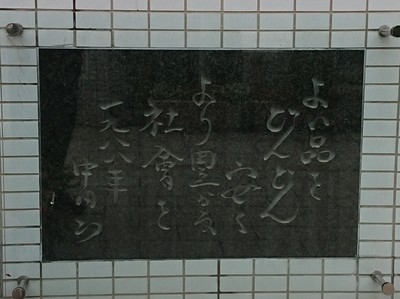 よい品を
どんどん
安く
より豊かな
社會を
一九八八年
中内㓛